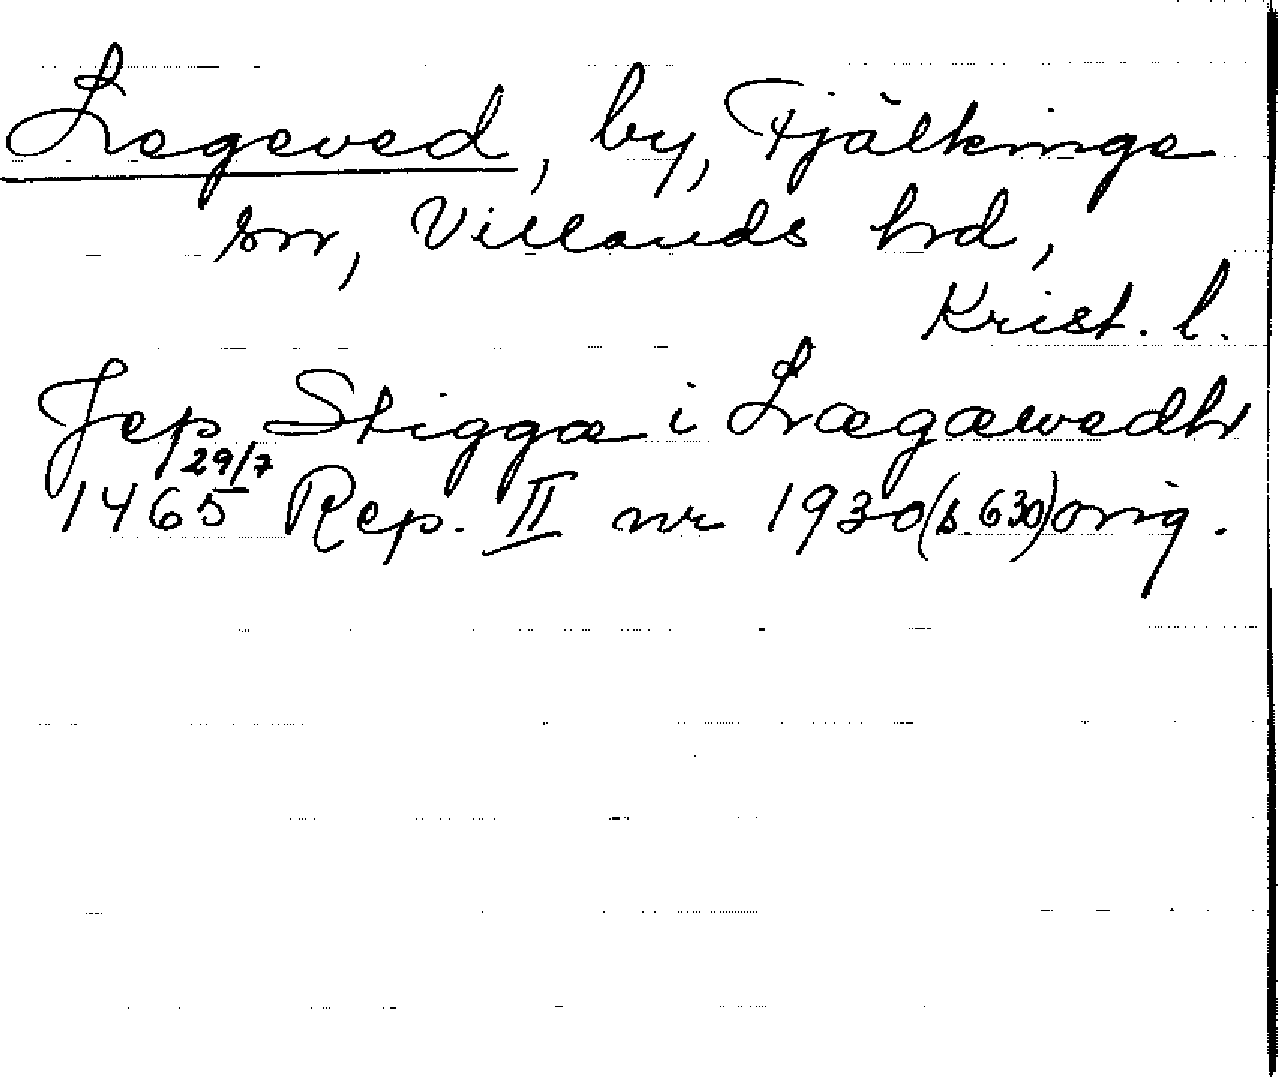 Legeved, by, Fjälkinge
sn, Villands hrd,
Krist. l.
Jep Stiggæ i Lægæwedh
29/7
1465 Rep. II nr 1930 (s. 630) orig.